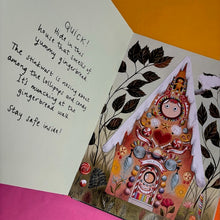 QUICK!
Hide in this
house that smells of
yummy gingerbread
The stinkwort is nosing around
among the lollipops and candy
It's munching at the
gingerbread wall
Stay safe inside!